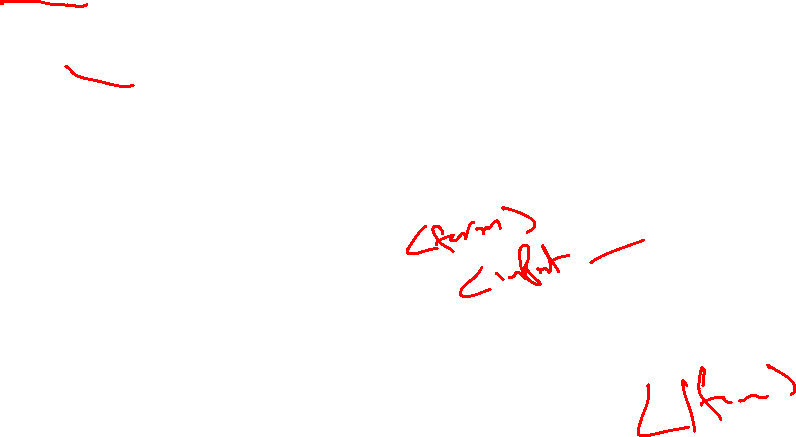 <form>
<input —
</form>